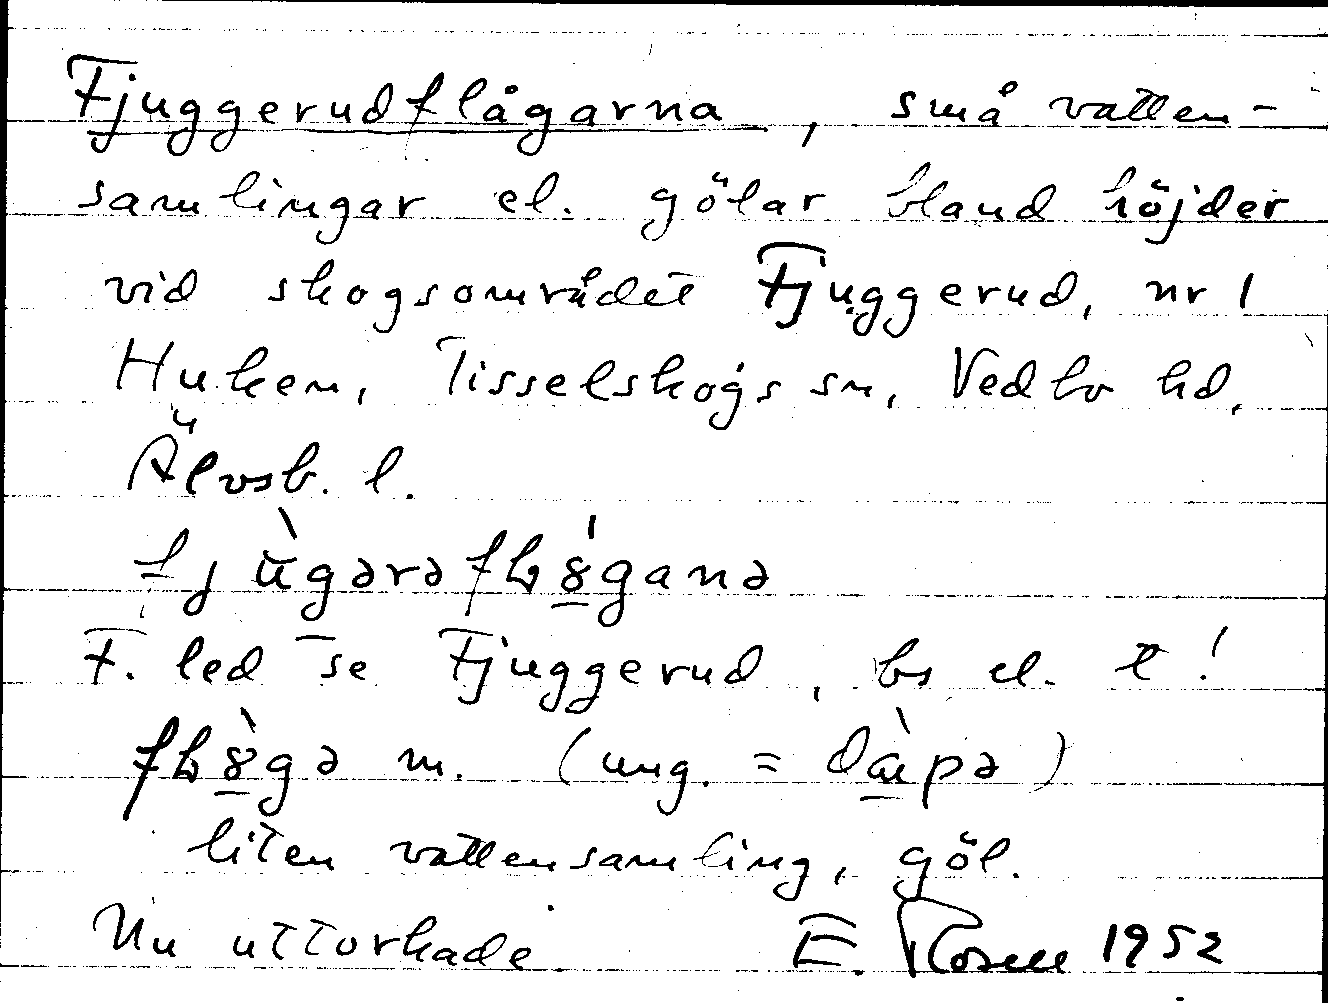 Fjuggerudflågarna, små vatten-
samlingar el. gölar bland höjder
vid skogsområdet Fjuggerud, nr 1
Huken, Tisselskogs sn, Vedbo hd,
Älvsb. l.
F. led se Fjuggerud, bs el. t!
m. (ung. = dὰpə)
liten vattensamling, göl.
Nu uttorkade E. Rosell 1952